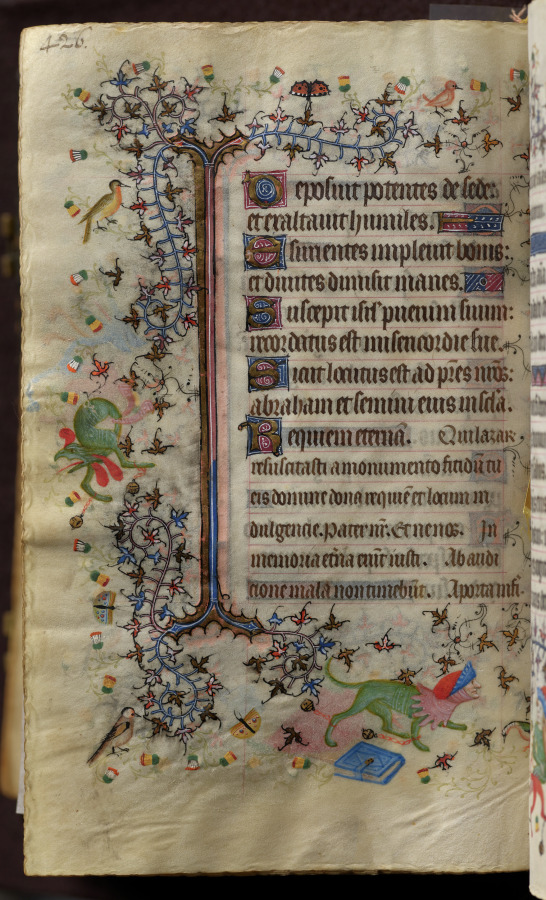 426.
Deposuit potentes de sede:
et exaltauit humiles.
Esurientes impleuit bonis:
et diuites dimisit inanes.
Suscepit isrł puerum suum:
recordatus est misericordie sue.
Sicut locutus est ad pr̄es nr̄os:
abraham et semini eius in scl̄a.
Requiem eternā. Qui lazarū
resuscitasti a monumento fetidū tu
eis domine dona requiē et locum in
dulgencie. Pater nr̄. Et ne nos. In
memoria et̄na erūt iusti. Ab audi
cione mala non timebūt. A porta infe